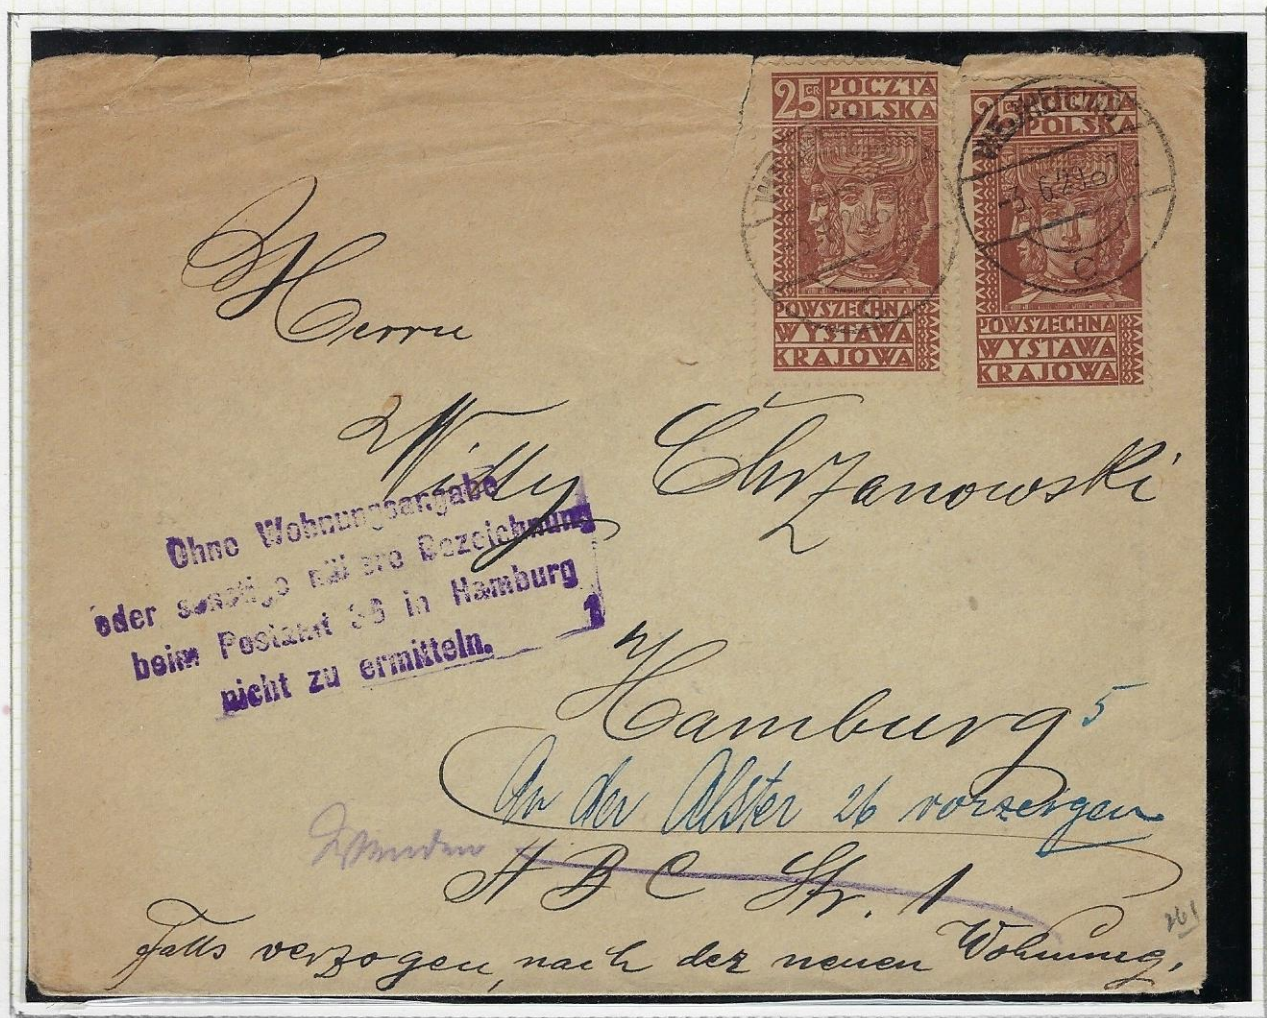 25 GR POCZTA
POLSKA
POWSZECHNA
WYSTAWA
KRAJOWA
25 POCZTA
POLSKA
-3. 6. 29. 8
C
POWSZECHNA
WYSTAWA
KRAJOWA
Herrn
Willy Chrzanowski
Ohne Wohnungsangabe
oder sonstige nähere Bezeichnung
beim Postamt 36 in Hamburg 1
nicht zu ermitteln.
Hamburg 5
An der Alster 26 vorzeigen
Wenden
A B C Str. 1
Falls verzogen, nach der neuen Wohnung.
261